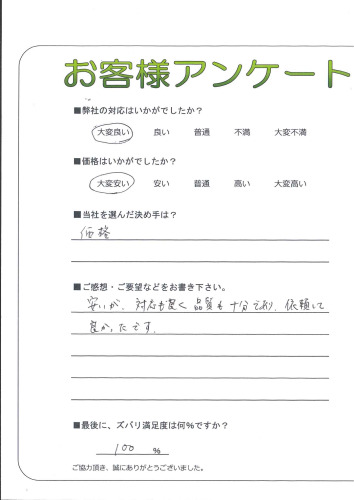 お客様アンケート
■弊社の対応はいかがでしたか？
大変良い 良い 普通 不満 大変不満
■価格はいかがでしたか？
大変安い 安い 普通 高い 大変高い
■当社を選んだ決め手は？
価格
■ご感想・ご要望などをお書き下さい。
安いが、対応も良く品質も十分であり、依頼して
良かったです。
■最後に、ズバリ満足度は何％ですか？
100 ％
ご協力頂き、誠にありがとうございました。